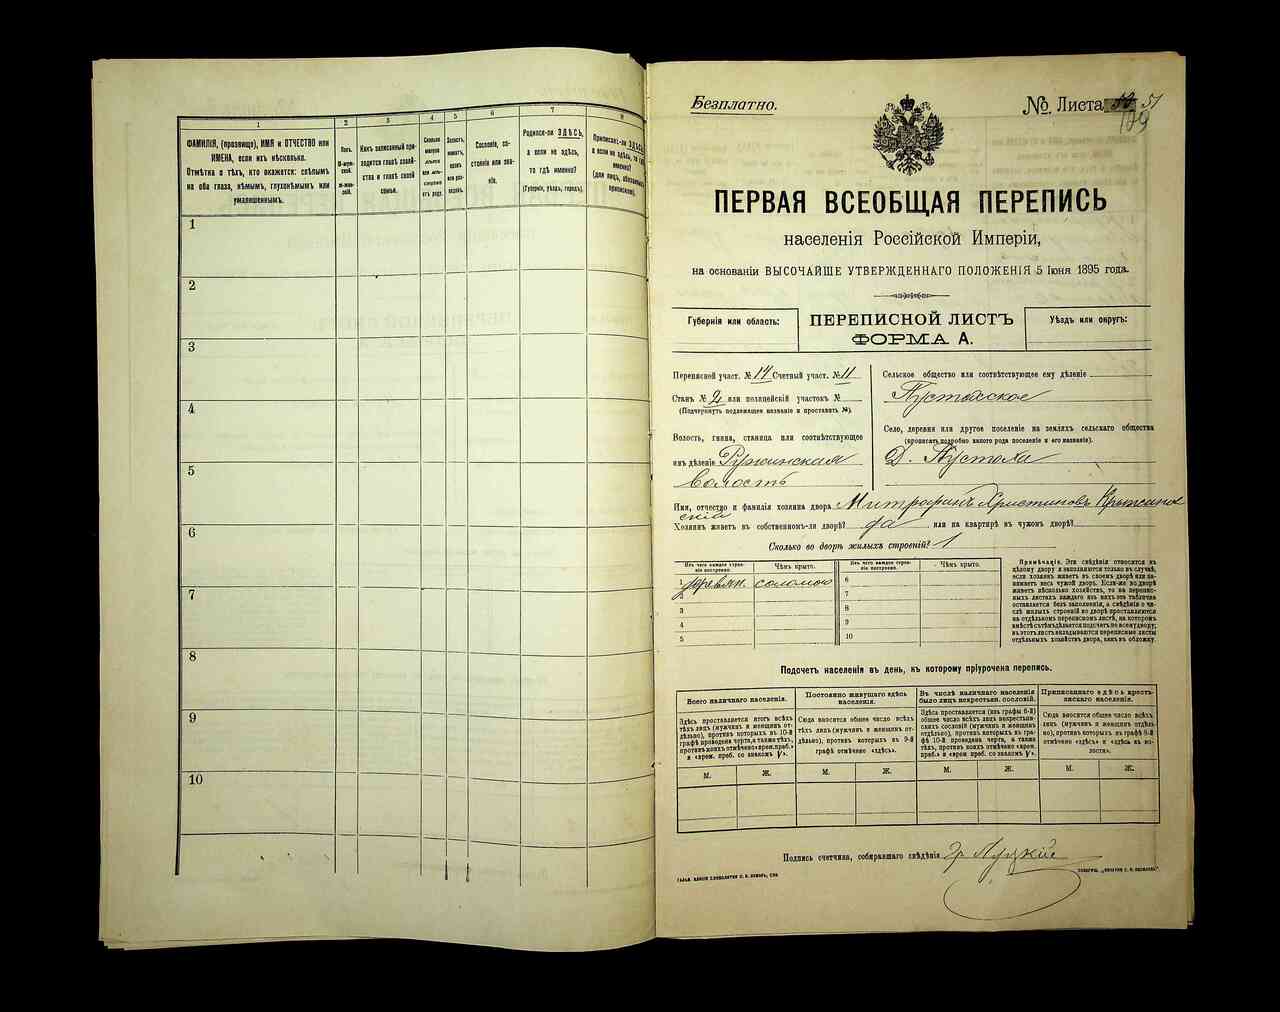 1
2
3
4
5
6
7
8
ФАМИЛІЯ, (прозвище), ИМЯ и ОТЧЕСТВО или
ИМЕНА, если ихъ нѣсколько.
Отмѣтка о тѣхъ, кто окажется: слѣпымъ
на оба глаза, нѣмымъ, глухонѣмымъ или
умалишеннымъ.
Полъ.
М-мужской.
Ж-женскій.
Какъ записанный приходится
главѣ хозяйства
и главѣ своей
семьи.
Сколько
минуло
лѣтъ
или мѣсяцевъ
отъ роду.
Сословіе, состояніе
или званіе.
Родился-ли ЗДѢСЬ,
а если не здѣсь,
то гдѣ именно?
(Губернія, уѣздъ, городъ).
Приписанъ-ли ЗДѢСЬ,
а если не здѣсь, то гдѣ
именно?
(для лицъ, обязанныхъ
припискою).
1
2
3
4
5
6
7
8
9
10
Безплатно.
№ Листа 51
129
ПЕРВАЯ ВСЕОБЩАЯ ПЕРЕПИСЬ
населенія Россійской Имперіи,
на основаніи ВЫСОЧАЙШЕ УТВЕРЖДЕННАГО ПОЛОЖЕНІЯ 5 Іюня 1895 года.
Губернія или область:
ПЕРЕПИСНОЙ ЛИСТЪ
ФОРМА А.
Уѣздъ или округъ:
Переписной участ. № 14 Счетный участ. № 11
Станъ № 2 или полицейскій участокъ №
(Подчеркнуть подлежащее названіе и проставить №).
Волость, гмина, станица или соотвѣтствующее
имъ дѣленіе Ружинская
волость
Сельское общество или соотвѣтствующее ему дѣленіе
Пустахское
Село, деревня или другое поселеніе на земляхъ сельскаго общества
(прописать подробно какого рода поселеніе и его названіе).
Д. Пустоха
Имя, отчество и фамилія хозяина двора Митрофанъ Христиновъ
Хозяинъ живетъ въ собственномъ-ли дворѣ? да, или на квартирѣ въ чужомъ дворѣ?
Сколько во дворѣ жилыхъ строеній? 1
Изъ чего каждое строеніе построено.
Чѣмъ крыто.
Изъ чего каждое строеніе построено.
Чѣмъ крыто.
1 деревян. соломою
2
3
4
5
6
7
8
9
10
Примѣчаніе. Эти свѣдѣнія относятся къ
цѣлому двору и заполняются только въ случаѣ,
если хозяинъ живетъ въ своемъ дворѣ или занимаетъ
весь чужой дворъ. Если-же во дворѣ
живетъ нѣсколько хозяйствъ, то на переписныхъ
листахъ каждаго изъ нихъ эта табличка
оставляется безъ заполненія, а свѣдѣнія о числѣ
жилыхъ строеній во дворѣ проставляются
на отдѣльномъ переписномъ листѣ, на которомъ
вмѣстѣ съ тѣмъ дѣлается подсчетъ по всему двору;
въ этотъ листъ вкладываются переписные листы
отдѣльныхъ хозяйствъ двора, какъ въ обложку.
Подсчетъ населенія въ день, къ которому пріурочена перепись.
Всего наличнаго населенія.
Здѣсь проставляется итогъ всѣхъ
тѣхъ лицъ (мужчинъ и женщинъ отдѣльно),
противъ которыхъ въ 10-й
графѣ проведена черта, а также тѣхъ,
противъ коихъ отмѣчено «врем. преб.»
и «врем. преб. со знакомъ V».
Постоянно живущаго здѣсь
населенія.
Сюда вносится общее число всѣхъ
тѣхъ лицъ (мужчинъ и женщинъ отдѣльно),
противъ которыхъ въ 9-й
графѣ отмѣчено «здѣсь».
Въ числѣ наличнаго населенія
было лицъ некрестьян. сословій.
Здѣсь проставляется (изъ графы 6-й)
общее число всѣхъ лицъ некрестьянскихъ
сословій (мужчинъ и женщинъ
отдѣльно), противъ которыхъ въ графѣ
10-й проведена черта, а также
тѣхъ, противъ коихъ отмѣчено «врем.
преб.» и «врем. преб. со знакомъ V».
Приписаннаго здѣсь крестьянскаго
населенія.
Сюда вносится общее число всѣхъ
лицъ (мужчинъ и женщинъ отдѣльно),
противъ которыхъ въ графѣ 8-й
отмѣчено «здѣсь» и «здѣсь въ волости».
М. Ж. М. Ж. М. Ж. М. Ж.
Подпись счетчика, собиравшаго свѣдѣнія Гр. Луцкій